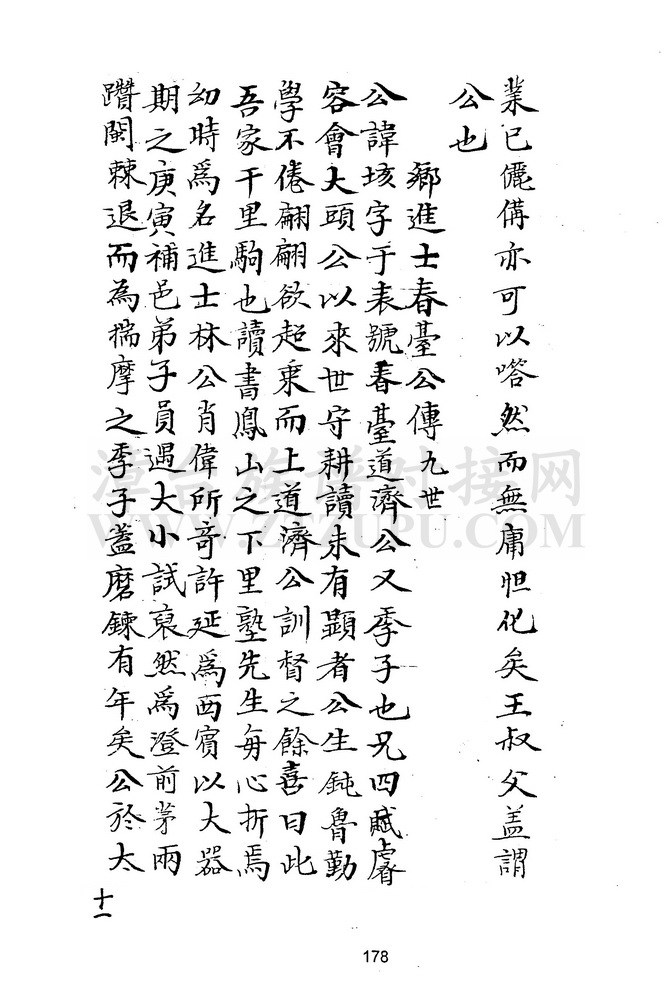 業已儷備亦可以嗒然而無庸怛化矣王叔父盖謂
公也
鄉進士春臺公傳九世
公諱垓字于表號春臺道濟公又季子也兄四賦睿
容會大頭公以來世守耕讀未有顯者公生鈍魯勤
學不倦翩翩欲超乗而上道濟公訓督之餘喜曰此
吾家千里駒也讀書鳳山之下里塾先生每心折焉
幼時為名進士林公肖偉所竒許延為西賓以大器
期之庚寅補邑弟子員遇大小試裒然為澄前茅兩
躓闈棘退而為揣摩之季子蓋磨鍊有年矣公於太
十一
178
漳台族谱对接网
WWW.ZTZUPU.COM